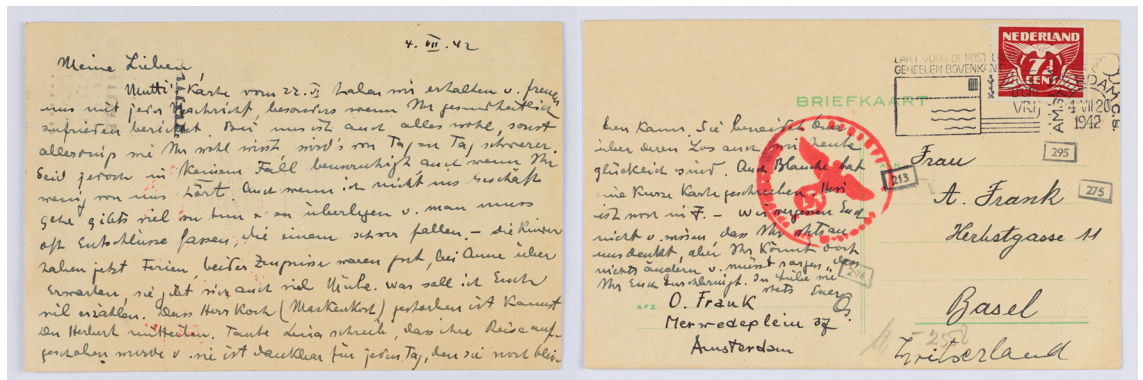 4. VII. 42
Meine Lieben
Mutti's Karte vom 22. VI haben wir erhalten u. freuen
uns mit jeder Nachricht, besonders wenn Ihr gesundheitlich
zufrieden berichtet. Bei uns ist auch alles wohl, sonst
allerdings wie Ihr wohl wisst wird's von Tag zu Tag schwerer.
Seid jedoch in keinem Fall beunruhigt auch wenn Ihr
wenig von uns hört. Auch wenn ich nicht ins Geschäft
gehe gibts viel zu tun & zu überlegen u. man muss
oft Entschlüsse fassen, die einem schwer fallen. – Die Kinder
haben jetzt Ferien, beider Zeugnisse waren gut, bei Anne über
Erwarten, sie gibt sich auch viel Mühe. Was soll ich Euch
viel erzählen. Dass Herr Koch gestorben ist kannst
Du Herbert mitteilen. Tante schreibt, dass ihre Reise auf-
geschoben wurde u. sie ist dankbar für jeden Tag, den sie noch blei-
ben kann. Sie
über deren Los auch wir heute
glücklich sind. Auch Blanche hat
eine kurze Karte geschrieben.
ist noch in F. – Wir vergessen Euch
nicht u. wissen, dass Ihr an
uns denkt, aber Ihr könnt dort
nichts ändern u. müsst sorgen, dass
Ihr Euch durchbringt. In Liebe wie
stets Euer
O.
BRIEFKAART
NEDERLAND
7½
CENT
GEHEELEN BOVENKANT
AMSTERDAM C.S.
4 VII 20
1942
295
213
275
294
Frau
A. Frank
Herbstgasse 11
Basel
Switserland
258
AFZ.
O. Frank
Merwedeplein 37
Amsterdam